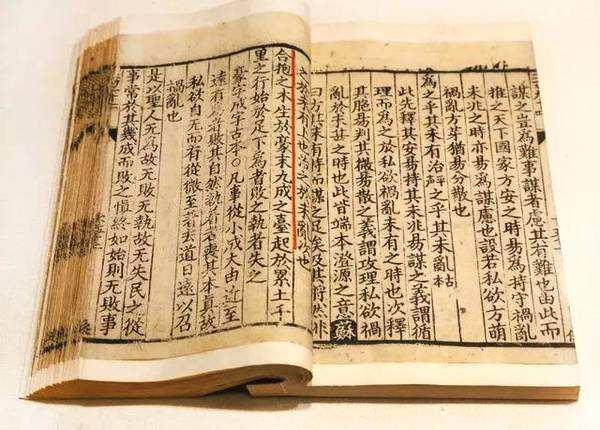 謀之豈為難事謀者慮其有難也由此而
推之天下國家方安之時易為持守禍亂
未兆之時亦易為謀慮也設若私欲方萌
禍亂方芽猶易分散也
為之乎其未有治之乎其未
此先釋其安易持其未兆易謀之義謂循
理而為之於私欲禍亂未有之時也次釋
其脆易判其微易散之義謂攻理私欲禍
亂於未甚之時也此皆端本澄源之意蘇
曰方其未有持而謀之足矣及其將然非
之於未有也之於未亂也
合抱之木生於豪末九成之臺起於累土千
里之行始於足下為者敗之執者失之
豪字成字古本○凡事從小成大由近至
遠有為者敗其自然執有者喪其本真故
私欲自无而有從微至著去道日遠以召
禍亂也
是以聖人无為故无敗无執故无失民之從
事常於其幾成而敗之慎終如始則无敗事